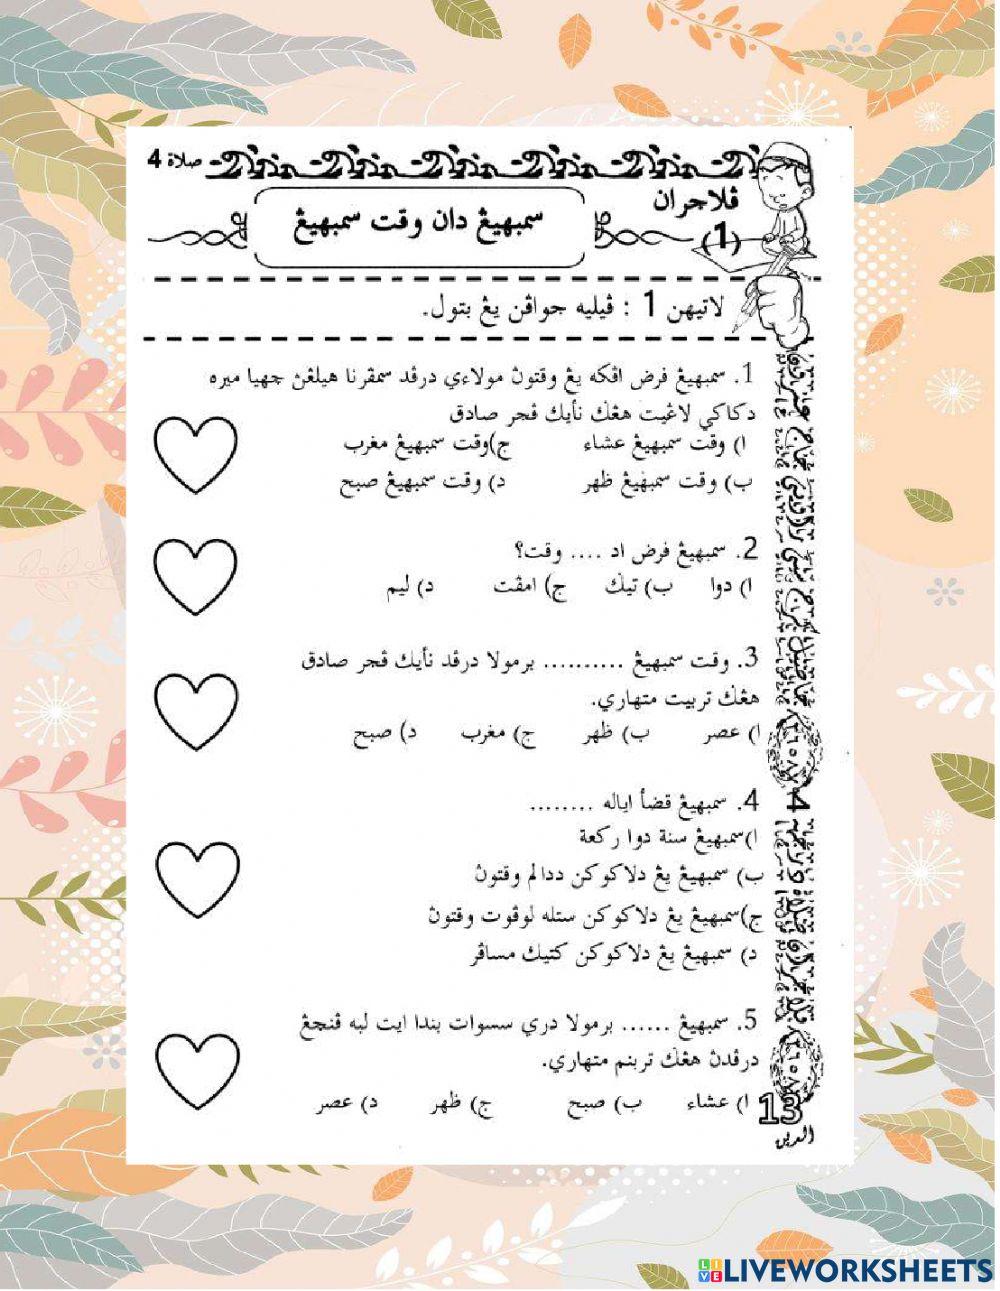 صلاة 4
ڤلاجران
(1)
سمبهيڠ دان وقت سمبهيڠ
لاتيهن 1 : ڤيليه جواڤن يڠ بتول.
1. سمبهيڠ فرض اڤكه يڠ وقتوڽ مولاءي درڤد سمڤرنا هيلڠن چهيا ميره
دكاكي لاڠيت هڠݢ نأيك ڤجر صادق
ا) وقت سمبهيڠ عشاء ج)وقت سمبهيڠ مغرب
ب) وقت سمبهيڠ ظهر د) وقت سمبهيڠ صبح
2. سمبهيڠ فرض اد .... وقت؟
ا) دوا ب) تيݢ ج) امڤت د) ليم
3. وقت سمبهيڠ .......... برمولا درڤد نأيك ڤجر صادق
هڠݢ تربيت متهاري.
ا) عصر ب) ظهر ج) مغرب د) صبح
4. سمبهيڠ قضأ اياله ........
ا)سمبهيڠ سنة دوا ركعة
ب) سمبهيڠ يڠ دلاكوكن ددالم وقتوڽ
ج)سمبهيڠ يڠ دلاكوكن ستله لوڤوت وقتوڽ
د) سمبهيڠ يڠ دلاكوكن كتيك مسافر
5. سمبهيڠ ...... برمولا دري سسوات بندا ايت لبه ڤنجڠ
درڤدڽ هڠݢ تربنم متهاري.
ا) عشاء ب) صبح ج) ظهر د) عصر
13
الدين
LIVEWORKSHEETS